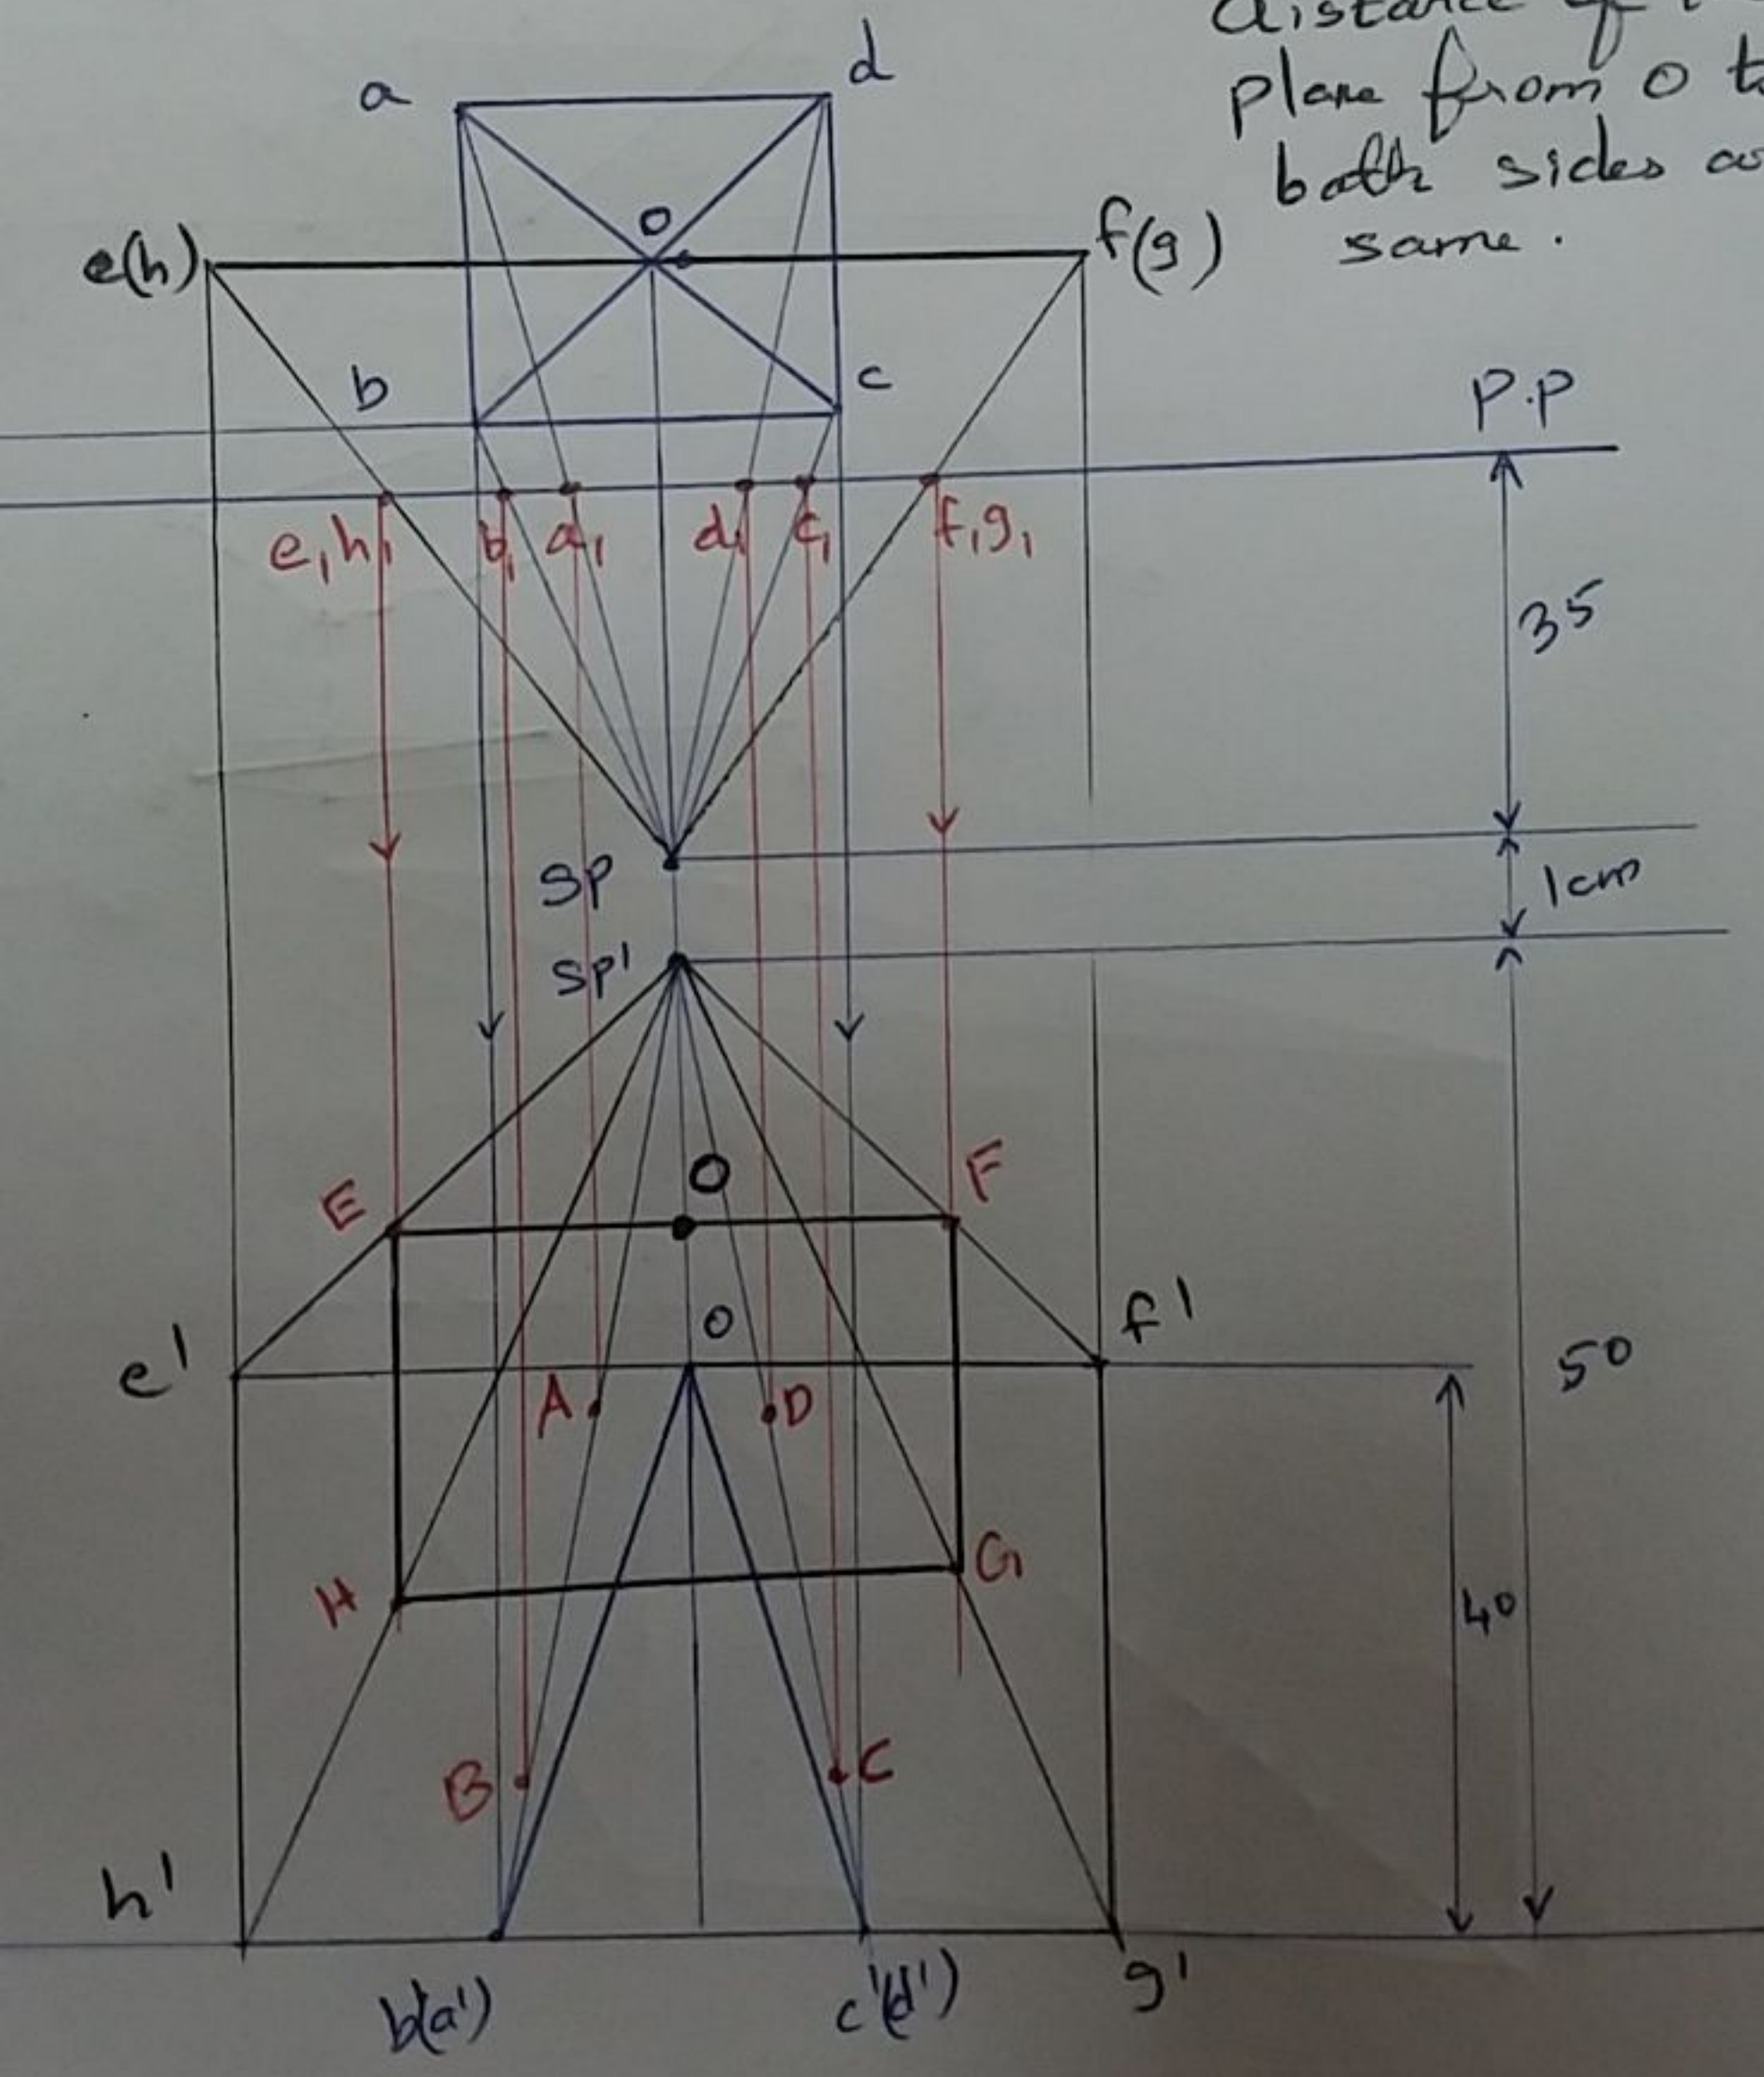 distance of
plane from o
both sides
same.
a
d
o
e(h)
f(g)
b
c
P.P
e₁h₁
b₁
a₁
d₁
c₁
f₁g₁
35
SP
1cm
SP'
E
O
F
e'
o
f'
50
A
D
H
G
40
B
C
h'
b'(a')
c'(d')
g'